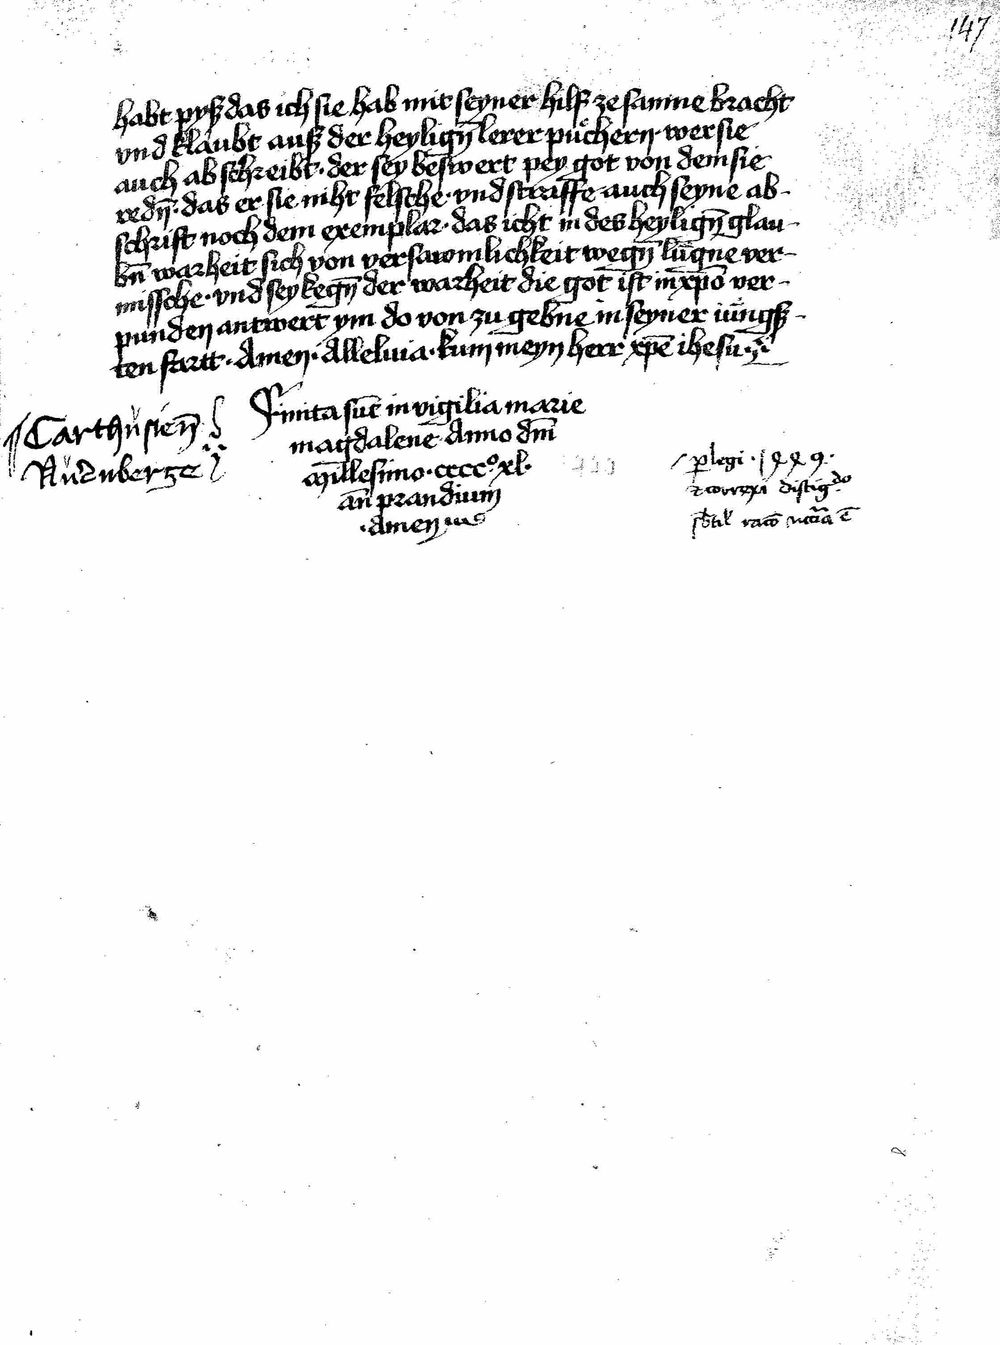 147
habt pyß das ich sie hab mit seyner hilf ze samne bracht
vnd klaubt auß der heyligñ lerer puͤchern · wer sie
auch ab schreibt · der sey beswert pey got von dem sie
redñ · das er sie niht felsche · vnd straffe auch seyne ab-
schrift noch dem exemplar · das icht in des heyligñ glau-
bñ warheit sich von versawmlichkeit wegñ lügne ver-
missche · vnd sey kegñ der warheit die got ist in xpō ver-
punden antwert ym do von zu gebne in seyner iüngß-
ten fartt · Amen · Alleluia · kum meyn herr xpē ihesu ·
Finita sūt in vigilia marie
magdalene Anno dm̄
Millesimo · cccc⁰ xl ·
añ prandium
· Amen
Carthusien̄
Nurnberge
plegi · 1449 ·
⁊ correxi distigdo